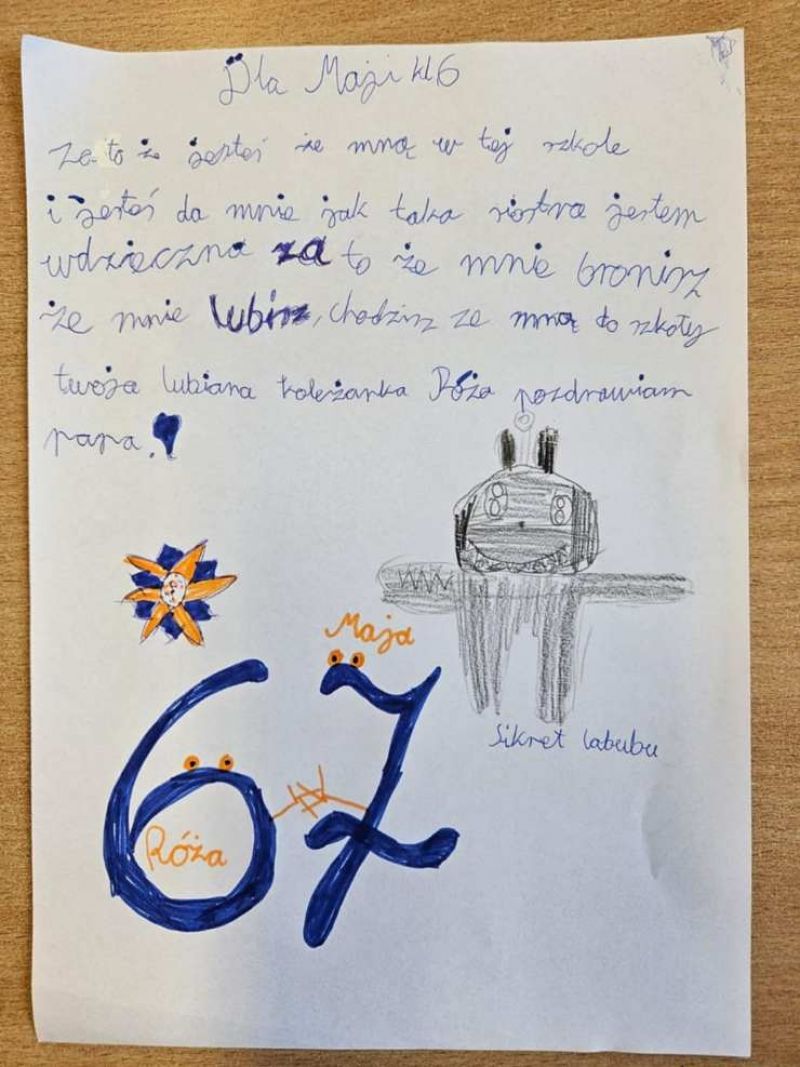 Dla Maji kl6
Za to że jesteś ze mną w tej szkole
i jesteś da mnie jak taka siostra jestem
wdzięczna za to że mnie bronisz
że mnie lubisz, chodzisz ze mną do szkoły
twoja lubiana koleżanka Róża pozdrawiam
papa.!
Maja
Sikret labubu
67
Róża